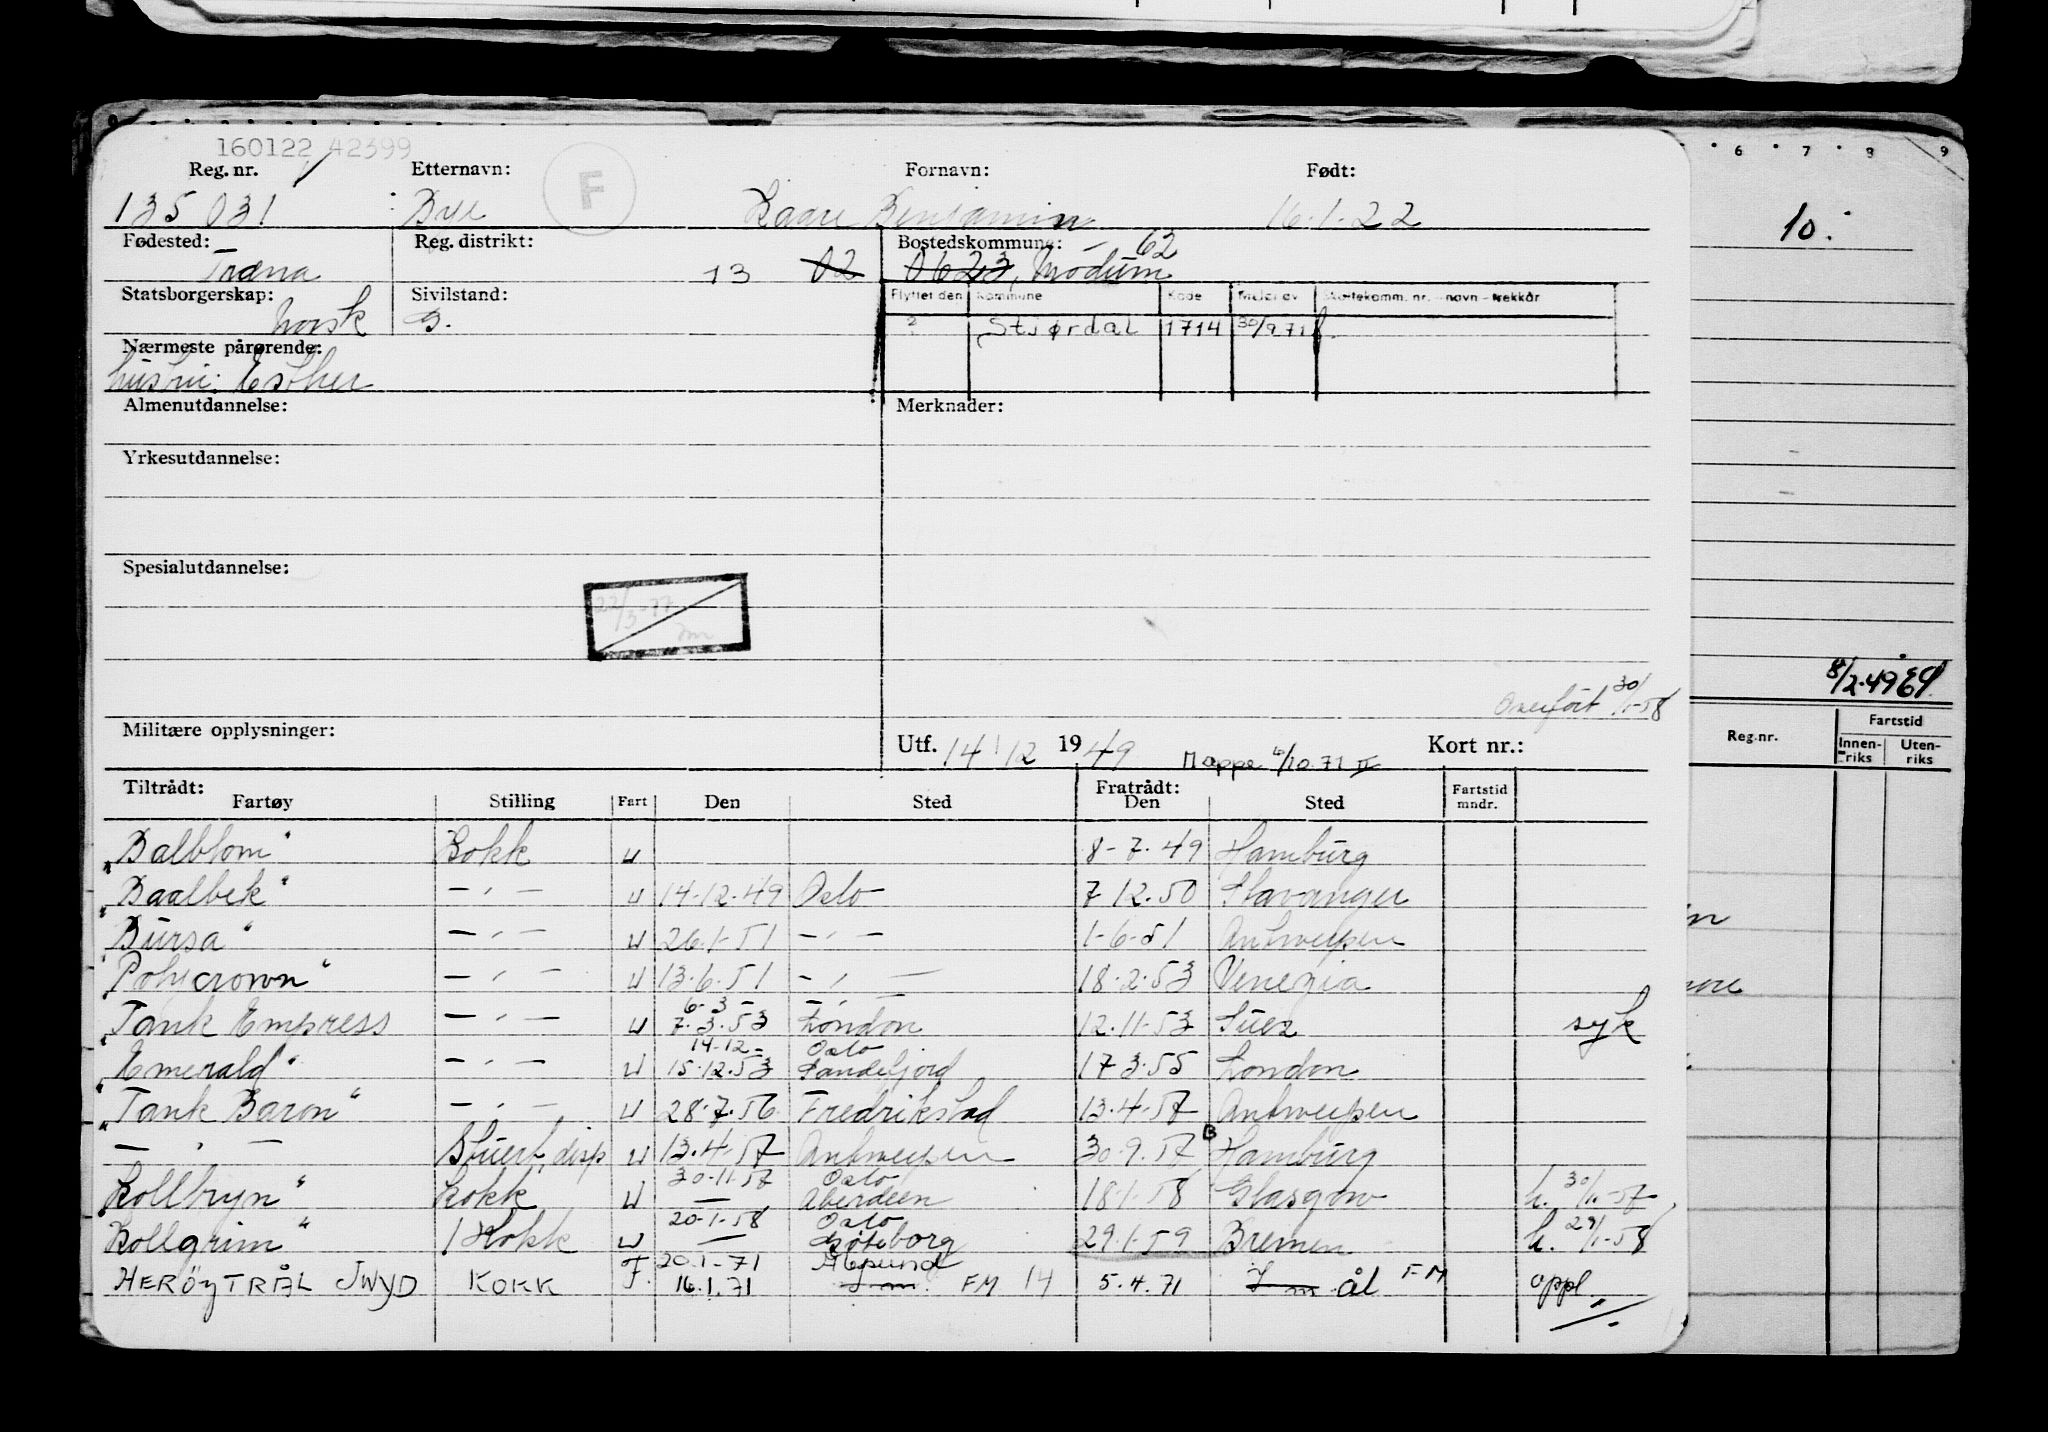 160122 42399
Reg. nr. Etternavn: F Fornavn: Født:
135 031 Bye Kaare Benjamin 16.1.22
Fødested: Reg. distrikt: Bostedskommune: 62
Træna 13 02 0623, Modum
Statsborgerskap: Sivilstand: Flyttet den Kommune Kode Meld. av Skattekomm. nr. - navn - trekkår
Norsk G. ? Stjørdal 1714 30/9 71
Nærmeste pårørende:
hustru: Esther
Almenutdannelse: Merknader:
Yrkesutdannelse:
Spesialutdannelse:
22/3-77
Overført 30/1-58
Militære opplysninger: Utf. 14/12 1949 Mappe 6/10.71 Kort nr.:
Tiltrådt: Fratrådt:
Fartøy Stilling Fart Den Sted Den Sted Fartstid mndr.
"Balblom" Kokk u 8-7-49 Hamburg
"Baalbek" — " — u 14-12-49 Oslo 7 12.50 Stavanger
"Bursa" — " — u 26.1-51 — " — 1-6-51 Antwerpen
"Polycrown" — " — u 13.6.51 — " — 18.2.53 Venezia
6-3- — " —
"Tank Empress — " — u 7.3.53 London 12.11.53 Suez syk
14-12- Oslo
"Emerald" — " — u 15.12.53 Sandefjord 17 3.55 London
"Tank Baron" — " — u 28.7.56 Fredrikstad 13.4.57 Antwerpen
— " — Stuert, disp u 13.4.57 Antwerpen 30.9.57 B Hamburg
30-11-57 Oslo
Kollbryn" Kokk u — Aberdeen 18.1.58 Glasgow h. 30/11-57
20-1-58 Oslo
Kollgrim" 1 Kokk u — Göteborg 29.1.59 Bremen h. 29/1-58
F 20.1-71 Ålesund
HERÖYTRÅL JWYD KOKK F. 16.1.71 FM 14 5.4.71 ål FM oppl.
6 7 8 9
10.
8/2.49
Reg.nr. Fartstid
Innenriks Utenriks